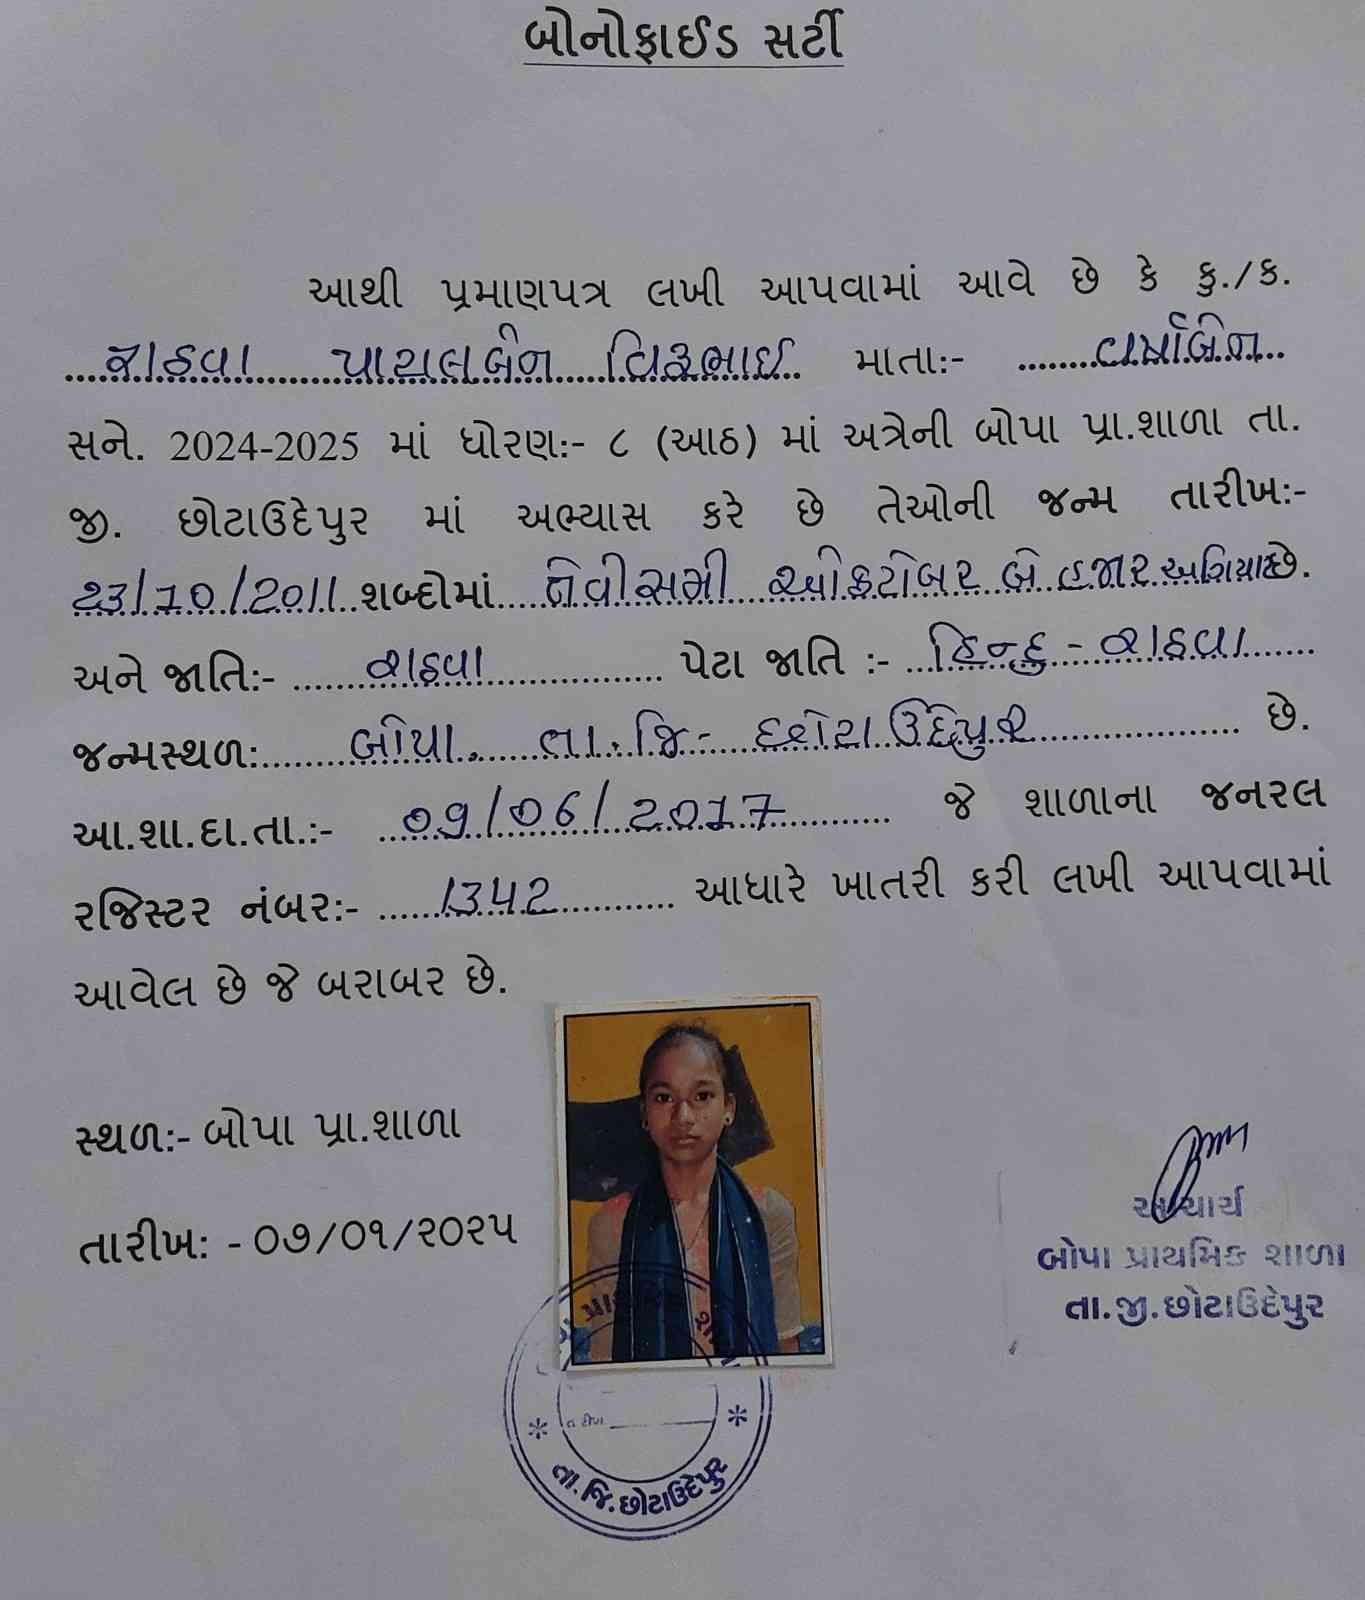 બોનોફાઈડ સર્ટી
આથી પ્રમાણપત્ર લખી આપવામાં આવે છે કે કુ./ક.
રાઠવા પાયલબેન વિરૂભાઈ માતા:-
સને. 2024-2025 માં ધોરણ:- ૮ (આઠ) માં અત્રેની બોપા પ્રા.શાળા તા.
જી. છોટાઉદેપુર માં અભ્યાસ કરે છે તેઓની જન્મ તારીખ:-
23/10/2011 શબ્દોમાં ત્રેવીસમી ઓક્ટોબર બે હજાર અગિયાર છે.
અને જાતિ:- રાઠવા પેટા જાતિ :- હિન્દુ - રાઠવા
જન્મસ્થળ: બોપા. તા. જિ- છોટાઉદેપુર છે.
આ.શા.દા.તા.:- 09/06/2017 જે શાળાના જનરલ
રજિસ્ટર નંબર:- 1342 આધારે ખાતરી કરી લખી આપવામાં
આવેલ છે જે બરાબર છે.
સ્થળ:- બોપા પ્રા.શાળા
તારીખ: - ૦૭/૦૧/૨૦૨૫
આચાર્ય
બોપા પ્રાથમિક શાળા
તા.જી.છોટાઉદેપુર
તા. જિ. છોટાઉદેપુર